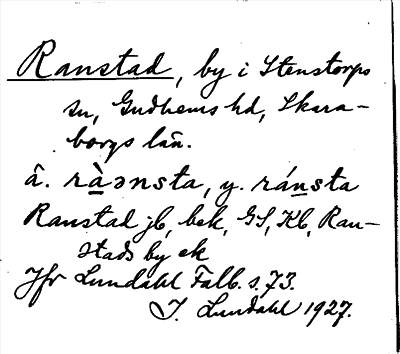 Ranstad, by i Stenstorps
sn, Gudhems hd, Skara-
borgs län.
â. ràənsta, y. ránsta
Ranstad jb, bek, GS, Kb, Ran-
stads by ek
Jfr Lundahl Falb. s. 73.
I. Lundahl 1927.